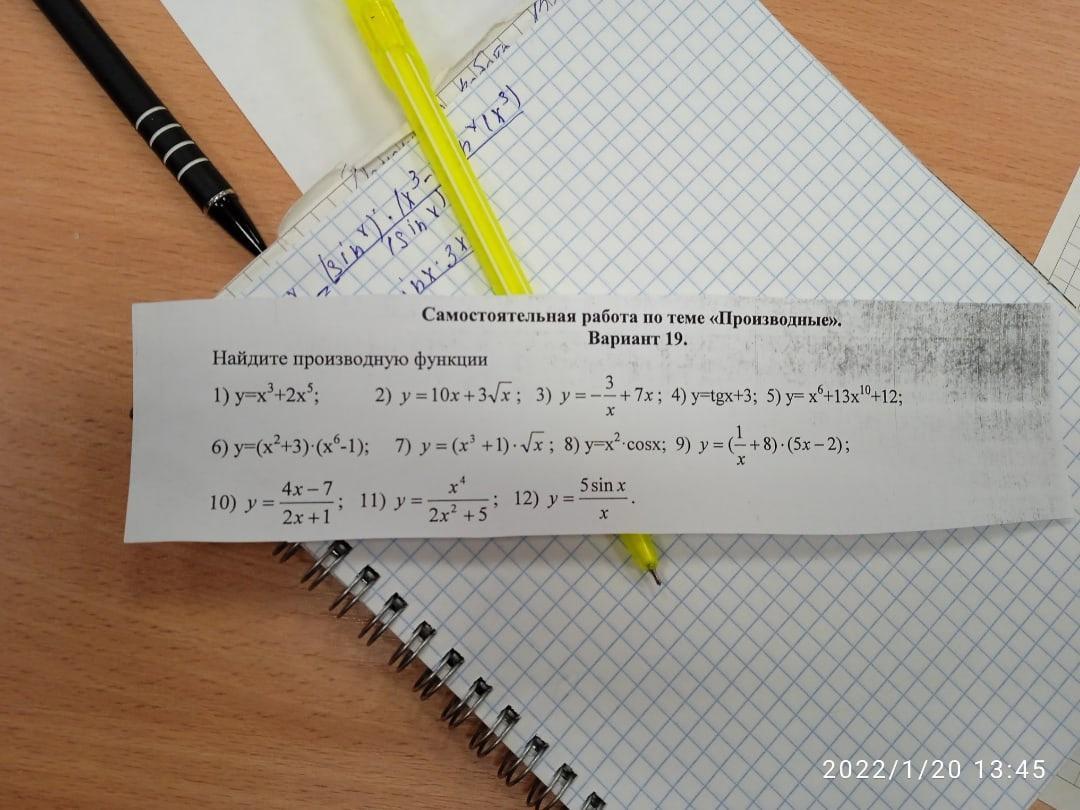 (x³)
(sin x)' · (x³ -
(sin x)
· 3x
Самостоятельная работа по теме «Производные».
Вариант 19.
Найдите производную функции
1) y=x³+2x⁵; 2) y = 10x + 3√x ; 3) y = -3/x + 7x ; 4) y=tgx+3; 5) y= x⁶+13x¹⁰+12;
6) y=(x²+3)·(x⁶-1); 7) y = (x³ +1)·√x ; 8) y=x²·cosx; 9) y = (1/x + 8)·(5x − 2) ;
10) y = (4x − 7)/(2x + 1) ; 11) y = x⁴/(2x² + 5) ; 12) y = 5 sin x/x .
2022/1/20 13:45